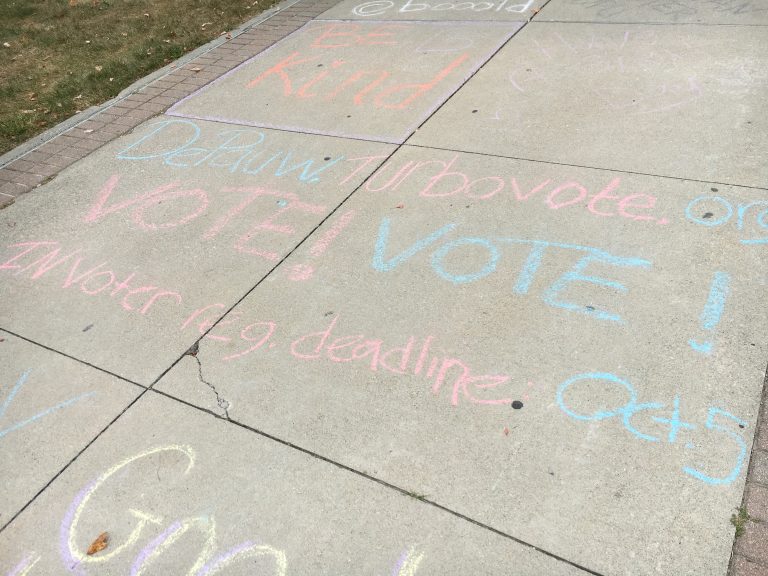 ©boooold
BE
Kind
DePauw. Turbovote.org
VOTE! VOTE!
IN Voter reg. deadline: Oct. 5